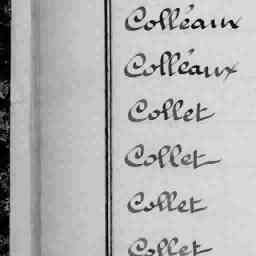 Colléaux
Colléaux
Collet
Collet
Collet
Collet